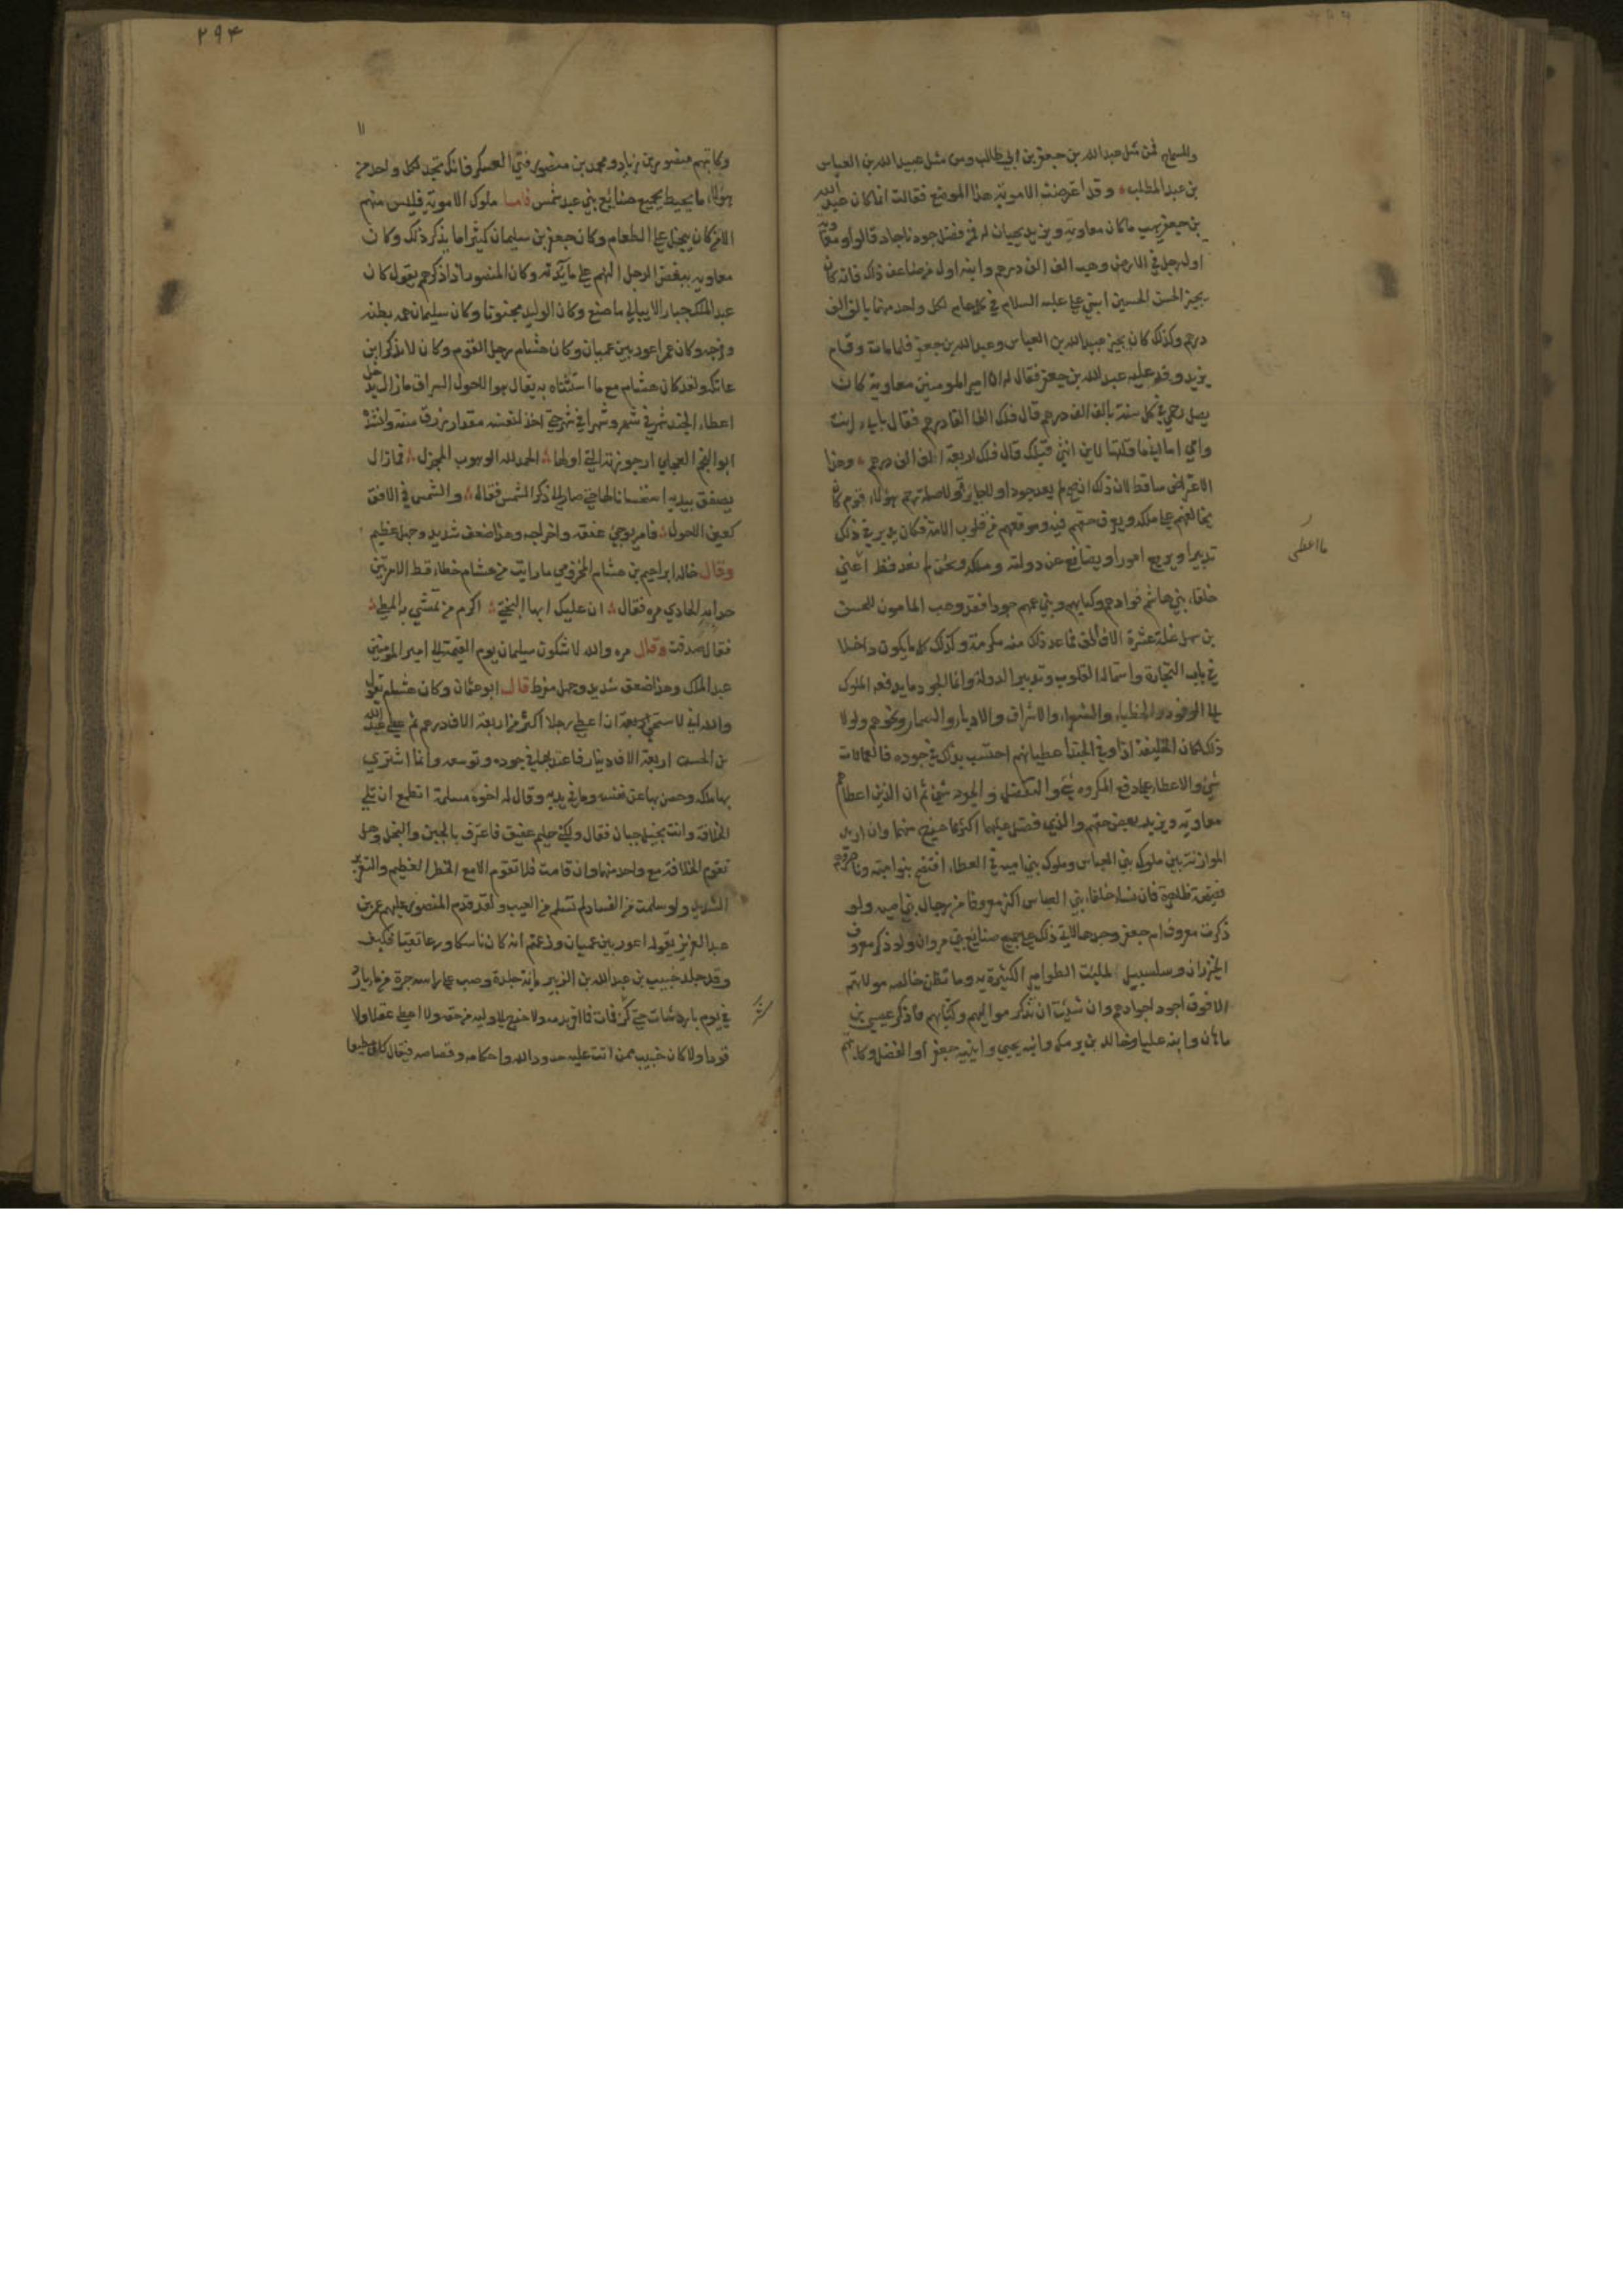 والسماح فمن مثل عبدالله بن جعفر بن ابي طالب ومن مثل عبيدالله بن العباس
بن عبدالمطلب وقد اعترضت الاموية هذا الموضع فقالت انما كان عبدالله
بن جعفر يهب ما كان معاوية ويزيد يحييان له فمن فضل جودنا جاد قالوا ومعاوية
اول رجل في الارض وهب الف الف درهم وابنه اول من ضاعف ذلك فانه كان
يجيز الحسن الحسين ابني علي عليه السلام في كل عام لكل واحد منهما بالف الف
درهم وكذلك كان يجيز عبيدالله بن العباس وعبدالله بن جعفر فلما مات وقام
يزيد وفد عليه عبدالله بن جعفر فقال له ان امير المومنين معاوية كان
يصل رحمي في كل سنة بالف الف درهم قال فلك الفا الف درهم فقال بابي انت
وامي اما اني ما قلتها لابن انثى قبلك قال فلك اربعة الف الف درهم وهذا
الاعتراض ساقط لان ذلك ان صح لم يعد جودا ولا جايزة ولا صلة رحم هولاء قوم كان
يخافهم على ملكه ويعرف حقهم فيه وموقعهم من قلوب الامة فكان يدبر في ذلك
تدبيرا ويريع امورا ويصانع عن دولته وملكه ونحن لم نعد قط اعطى
خلفاء بني هاشم قوادهم وكتابهم وبني عمهم جودا فقد وهب المامون للحسن
بن سهل غلة عشرة الاف الف فما عد ذلك منه مكرمة وكذلك كل ما يكون داخلا
في باب التجارة واستمالة القلوب وتدبير الدولة وانما الجود ما يدفعه الملوك
الى الوفود والخطباء والشعراء والاشراف والادباء والسمار ونحوهم ولولا
ذلك لكان الخليفة اذا وفى الجند اعطياتهم احتسب بذلك في جوده فالعمالات
شيء والاعطاء على دفع المكروه شيء والتفضل والجود شيء ثم ان الذين اعطاهم
معاوية ويزيد بعض حقهم والذي فضل عليهما اكثر مما خرج منهما وان اريد
الموازنة بين ملوك بني العباس وملوك بني امية في العطاء افتضح بنو امية وناصروهم
فضيحة ظاهرة فان نساء خلفاء بني العباس اكثر معروفا من رجال بني امية ولو
ذكرت معروف ام جعفر وحدها لاتى ذلك على جميع صنايع بني مروان ولو ذكر معروف
الخيزران وسلسبيل لملئت الطوامير الكثيرة به وما نظن خالصه مولاتهم
الا فوق اجود اجوادهم وان شئت ان تذكر مواليهم وكتابهم فاذكر عيسى بن
ماهان وابنه عليا وخالد بن برمك وابنه يحيى وابنيه جعفر او الفضل وكاتبهم
ما اعطى
٢٩٤
وكاتبهم منصور بن زياد ومحمد بن منصور فتى العسكر فانك تجد لكل واحد من
هولاء ما يحيط بجميع صنائع بني عبد شمس فاما ملوك الاموية فليس منهم
الا من كان يبخل على الطعام وكان جعفر بن سليمان كثيرا ما يذكر ذلك وكان
معاوية يبغض الرجل النهم على مائدته وكان المنصور اذا ذكرهم يقول كان
عبد الملك جبارا لا يبالي ما صنع وكان الوليد مجنونا وكان سليمان همه بطنه
وفرجه وكان عمر اعور بين عميان وكان هشام رجل القوم وكان لا يذكر ابن
عاتكة ولقد كان هشام مع ما استثناه به يقال هو الاحول السراق ما زال يدخل
اعطاء الجند شهرا في شهر وشهرا في شهر حتى اخذ لنفسه مقدار رزق سنة وانشده
ابو النجم العجلي ارجوزته التي اولها الحمد لله الوهوب المجزل فما زال
يصفق بيديه استحسانا لها حتى صار الى ذكر الشمس فقال والشمس في الافق
كعين الاحول فامر بوجئ عنقه واخراجه وهذا ضعف شديد وجهل عظيم
وقال خاله ابراهيم بن هشام المخزومي ما رايت من هشام خطاء قط الا مرتين
حدا به الحادي مره فقال ان عليك ايها البختي اكرم من تمشي به المطي
فقال صدقت وقال مره والله لاشكون سليمان يوم القيمة الى امير المومنين
عبد الملك وهذا ضعف شديد وجهل مفرط قال ابو عثمان وكان هشام يقول
والله اني لاستحيي ان اعطي رجلا اكثر من اربعة الاف درهم ثم اعطى عبدالله
بن الحسن اربعة الاف دينار فاعتد بها في جوده وتوسعه وانما اشترى
بها ملكه وحصن بها عن نفسه وما في يديه وقال له اخوه مسلمة اتطمع ان تلي
الخلافة وانت بخيل جبان فقال ولكني حليم عفيف فاعترف بالجبن والبخل وهل
تقوم الخلافة مع واحد منهما وان قامت فلا تقوم الا مع الخطر العظيم والتغرير
الشديد ولو سلمت من الفساد لم تسلم من العيب ولقد قدم المنصور عليهم عمر بن
عبد العزيز بقوله اعور بين عميان وزعمتم انه كان ناسكا ورعا تقيا فكيف
وقد جلد خبيب بن عبدالله بن الزبير مائة جلدة وصب على راسه جرة من ماء بارد
في يوم بارد شات حتى كز فمات فما اقر بدمه ولا خرج الى وليه من حقه ولا اعطى عقلا ولا
قودا ولا كان خبيب ممن اتت عليه حدود الله واحكامه وقصاصه فيقال كان مطيعا